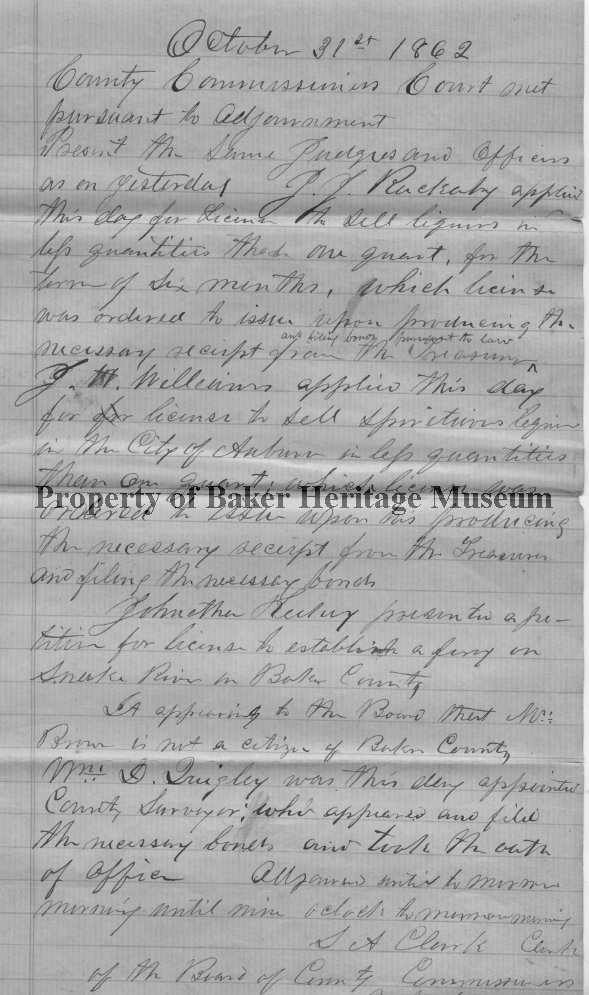 October 31st 1862
County Commissioners Court met
pursuant to adjournment
Present the Same Judges and Officers
as on yesterday J. J. Rackaby applied
this day for License to sell liquors in
less quantities than one quart, for the
term of six months, which license
was ordered to issue upon producing the
and filing bonds pursuant to law
necessary receipt from the Treasurer
Williams applied this day
for license to sell spirituous liquors
in the City of Auburn in less quantities
than one quart; which license was
Property of Baker Heritage Museum
ordered to issue upon his producing
the necessary receipt from the Treasurer
and filing the necessary bonds
presented a pe-
tition for license to establish a ferry on
Snake River in Baker County
It appearing to the Board that
Brown is not a citizen of Baker County,
Wm. D. Quigley was this day appointed
County Surveyor; who appeared and filed
the necessary bonds and took the oath
of office Adjourned until to morrow
morning until nine oclock to morrow morning
S A Clark Clerk
of the Board of County Commissioners